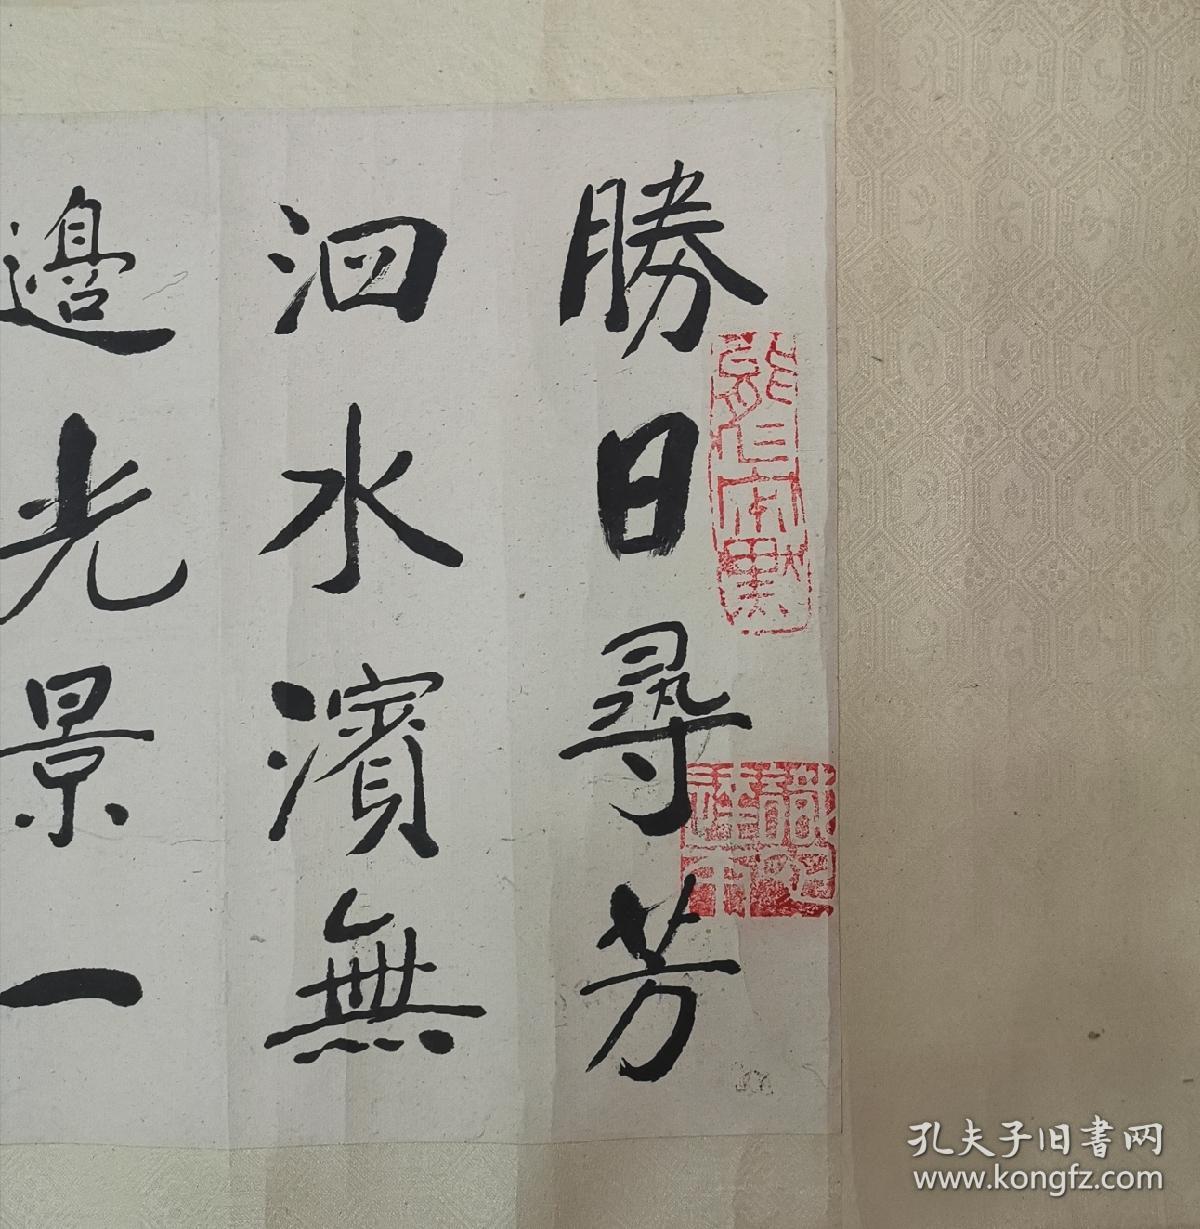 勝日尋芳
泗水濱無
邊光景一
孔夫子旧書网
www.kongfz.com